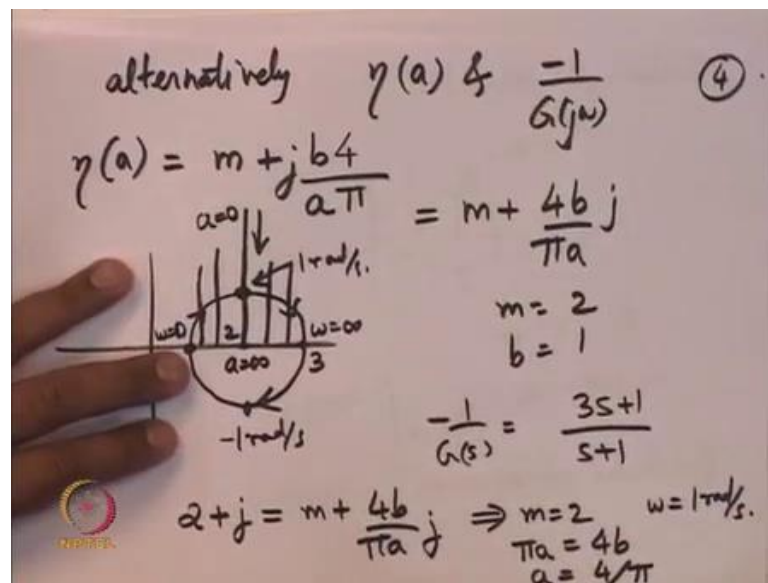 alternatively η(a) & -1/G(jω) ④
η(a) = m + j b4/aπ = m + 4b/πa j
a=0
1 rad/s.
ω=0 2 ω=∞
a=∞ 3
-1 rad/s
m = 2
b = 1
-1/G(s) = 3s+1/s+1
2+j = m + 4b/πa j ⇒ m=2 ω=1 rad/s.
πa = 4b
a = 4/π
NPTEL